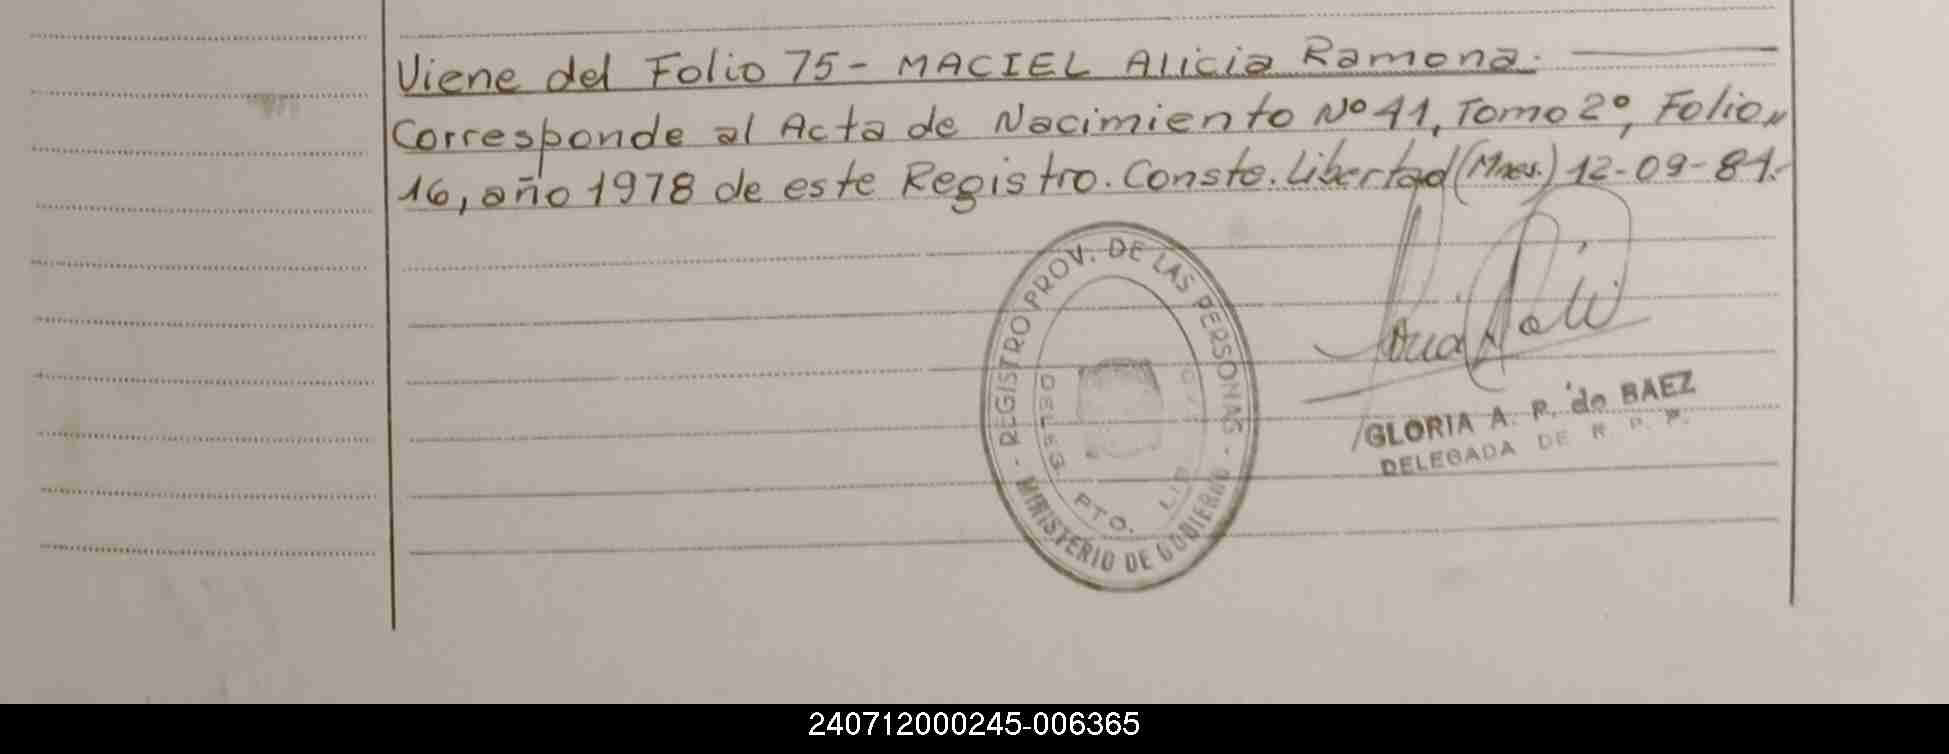 Viene del Folio 75 - MACIEL Alicia Ramona.
Corresponde al Acta de Nacimiento Nº 41, Tomo 2º, Folio
16, año 1978 de este Registro. Conste. Libertad (Mnes.) 12-09-81.-
- REGISTRO PROV. DE LAS PERSONAS -
MINISTERIO DE GOBIERNO
DELEG.
PTO. LIB
GLORIA A. P. de BAEZ
DELEGADA DE R. P. P.
240712000245-006365